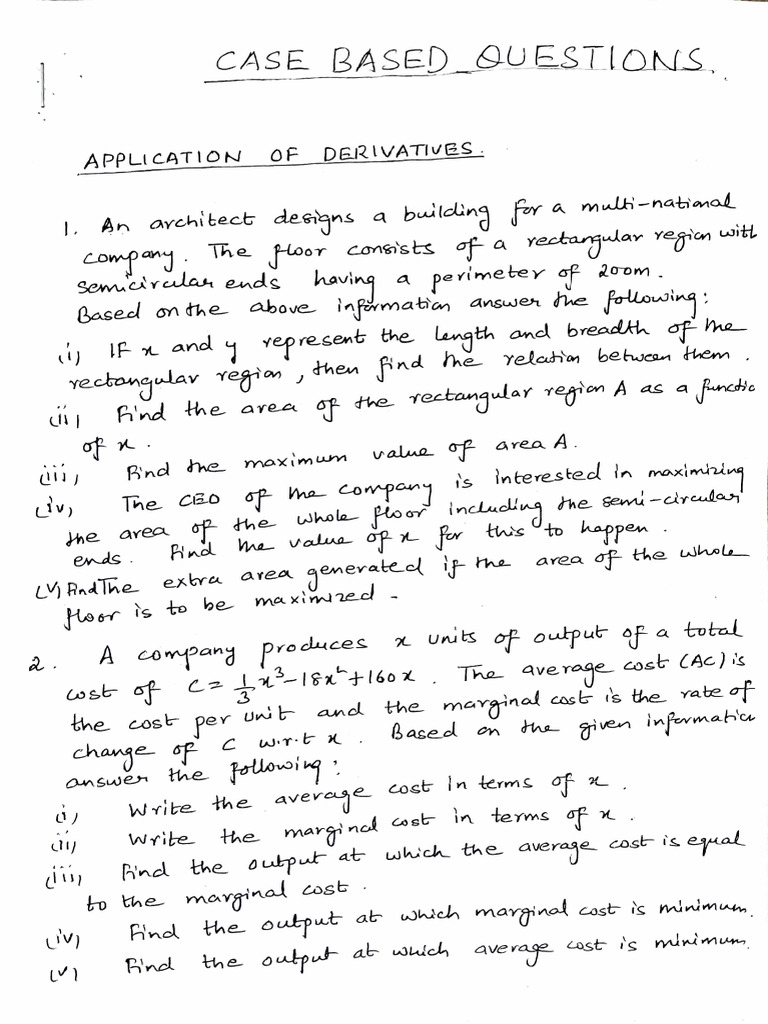 CASE BASED QUESTIONS.
APPLICATION OF DERIVATIVES.
1. An architect designs a building for a multi-national
company. The floor consists of a rectangular region with
semicircular ends having a perimeter of 200m.
Based on the above information answer the following:
(i) If x and y represent the length and breadth of the
rectangular region, then find the relation between them.
(ii) Find the area of the rectangular region A as a functio
of x.
(iii) Find the maximum value of area A.
(iv) The CEO of the company is interested in maximizing
the area of the whole floor including the semi-circular
ends. Find the value of x for this to happen.
(v) Find The extra area generated if the area of the whole
floor is to be maximized.
2. A company produces x units of output of a total
cost of C = 1/3 x³ - 18x² + 160x. The average cost (AC) is
the cost per unit and the marginal cost is the rate of
change of C w.r.t x. Based on the given informatio
answer the following:
(i) Write the average cost in terms of x.
(ii) Write the marginal cost in terms of x.
(iii) Find the output at which the average cost is equal
to the marginal cost.
(iv) Find the output at which marginal cost is minimum.
(v) Find the output at which average cost is minimum.